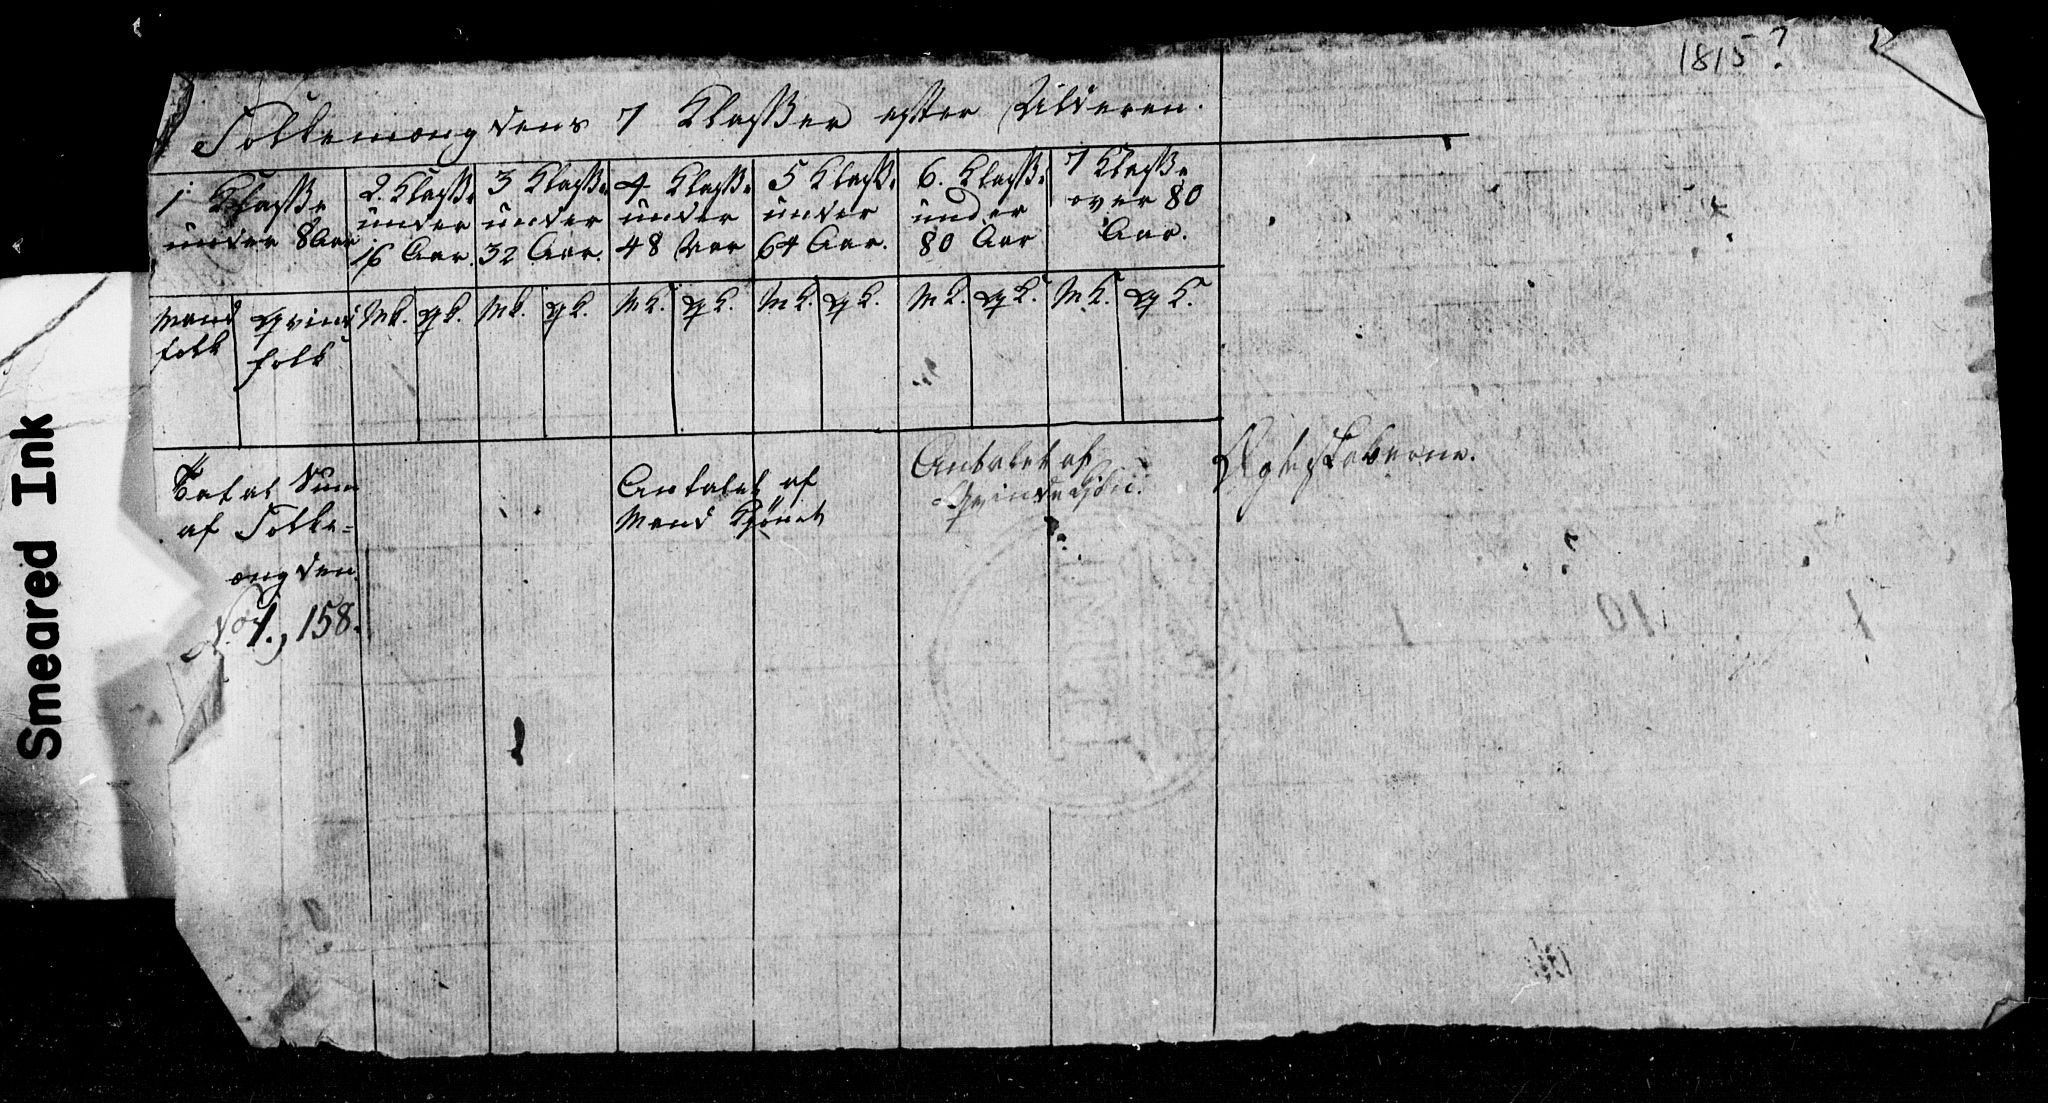 1815?
Folkemængdens 7 Klasser efter Alderen.
1 Klasse under 8 Aar
2. Klasse under 16 Aar.
3 Klasse under 32 Aar.
4 Klasse under 48 Aar
5 Klasse under 64 Aar.
6. Klasse under 80 Aar
7 Klasse over 80 Aar.
Mand folk
Qvind folk
Mk. qk. Mk. qk. Mk. qk. Mk. qk. Mk. qk. Mk. qk.
Total Sum
af Folke=
mængden.
1,158.
Antalet af
Mand Kjönet
Antalet af
Qvindekjön:
Ægteskaberne.
Smeared Ink